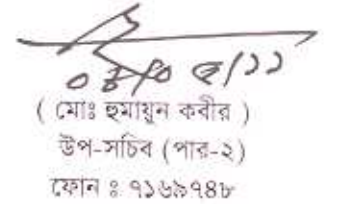 ( মোঃ হুমায়ুন কবীর )
উপ-সচিব (পার-২)
ফোন ঃ ৭১৬৯৭৪৮